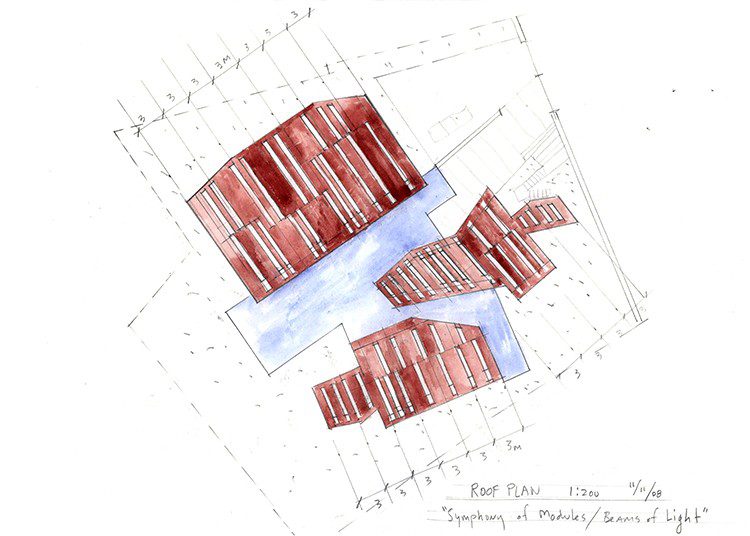 3 3 3 3M 3 3 3
3 3 3
3 3 3 3 3 3M
ROOF PLAN 1:200 11/11/08
"Symphony of Modules / Beams of Light"